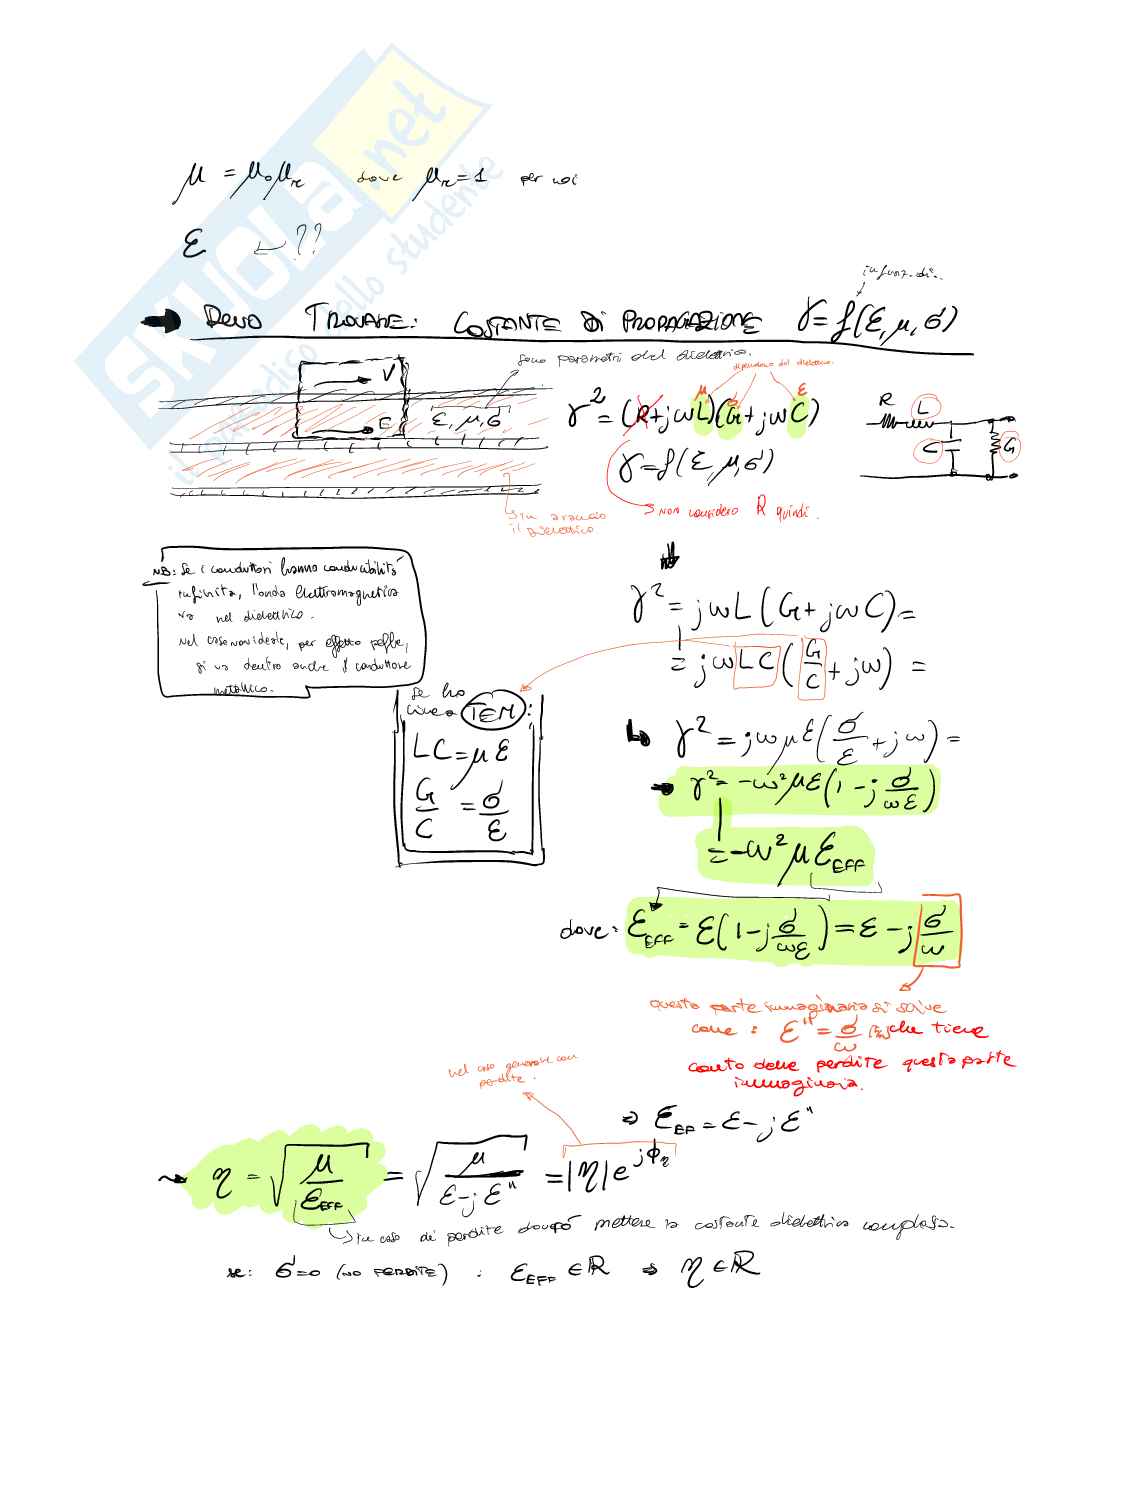 SKUOLA.net
il paradiso dello studente
μ = μ₀μᵣ dove μᵣ=1 per noi
ε ← ??
in funz. di..
→ DEVO TROVARE: COSTANTE DI PROPAGAZIONE γ = f(ε, μ, σ)
sono parametri del dielettrico.
dipendono dal dielettrico.
V
E
ε, μ, σ
μ σ ε
γ² = (R+jωL)(G+jωC)
γ = f(ε, μ, σ)
R L
C G
→ non considero R quindi.
in arancio
il dielettrico
NB: Se i conduttori hanno conducibilità
infinita, l'onda elettromagnetica
va nel dielettrico.
nel caso non ideale, per effetto pelle,
si va dentro anche il conduttore
metallico.
γ² = jωL(G+jωC) =
= jωLC(G/C + jω) =
Se ho
linea TEM:
LC = με
G/C = σ/ε
↳ γ² = jωμε(σ/ε + jω) =
→ γ² = -ω²με(1 - j σ/ωε)
= -ω²με_EFF
dove: ε_EFF = ε(1 - j σ/ωε) = ε - j σ/ω
questa parte immaginaria si scrive
come: ε'' = σ/ω che tiene
conto delle perdite questa parte
immaginaria.
nel caso generale con
perdite.
⇒ ε_EF = ε - jε''
η = √(μ/ε_EFF) = √(μ/(ε-jε'')) = |η|e^{jϕ_η}
↳ in caso di perdite dovrò mettere la costante dielettrica complessa.
se: σ=0 (NO PERDITE) : ε_EFF ∈ ℝ ⇒ η ∈ ℝ